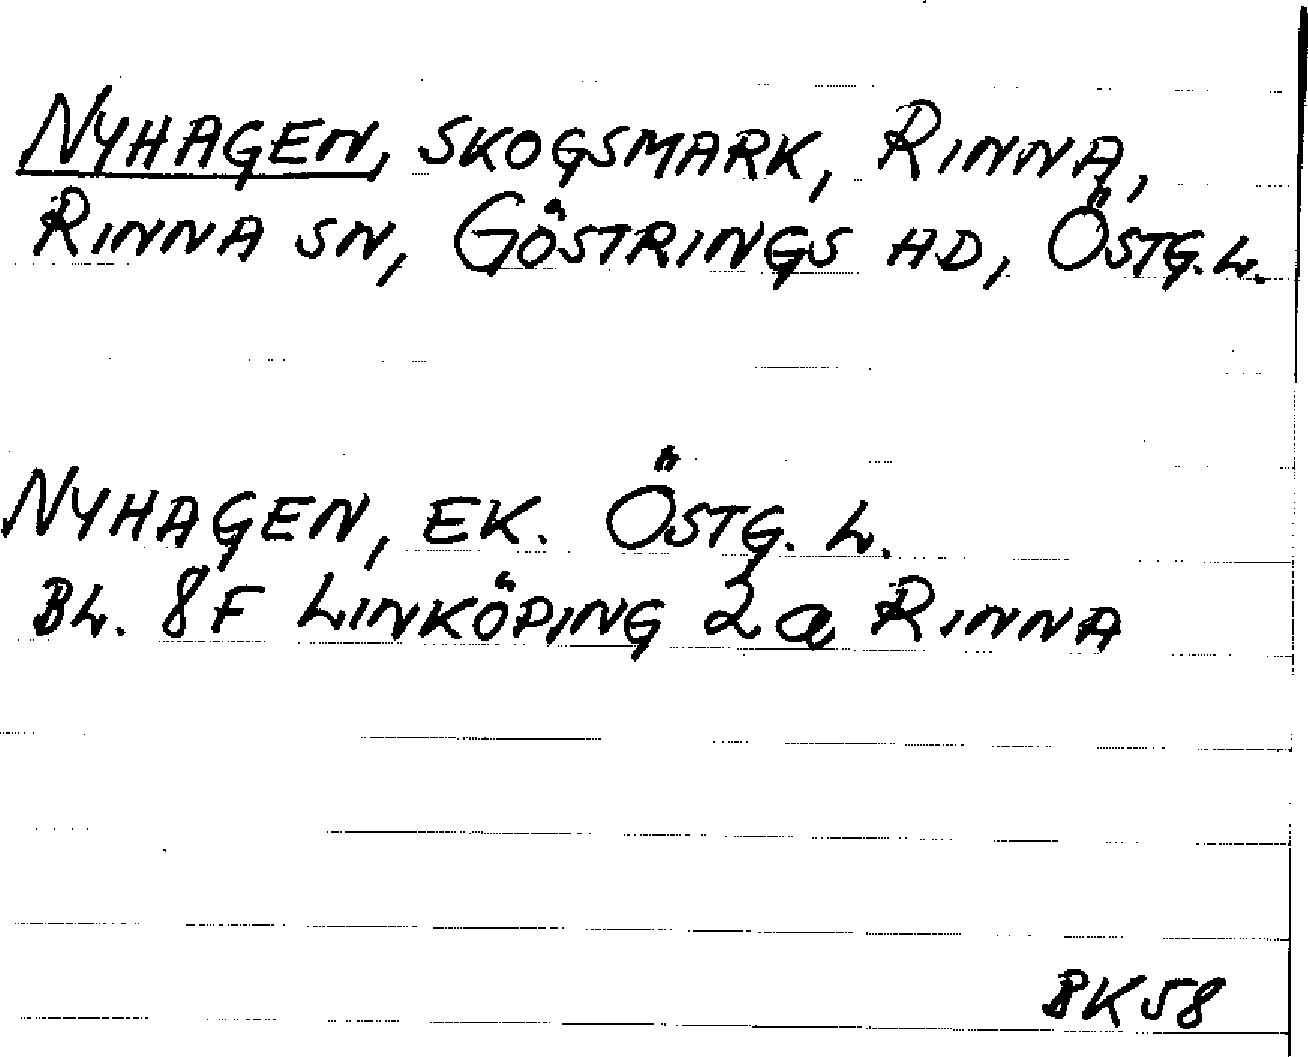 NYHAGEN, SKOGSMARK, RINNA,
RINNA SN, GÖSTRINGS HD, ÖSTG.L.
NYHAGEN, EK. ÖSTG. L.
BL. 8F LINKÖPING 2a RINNA
BK58